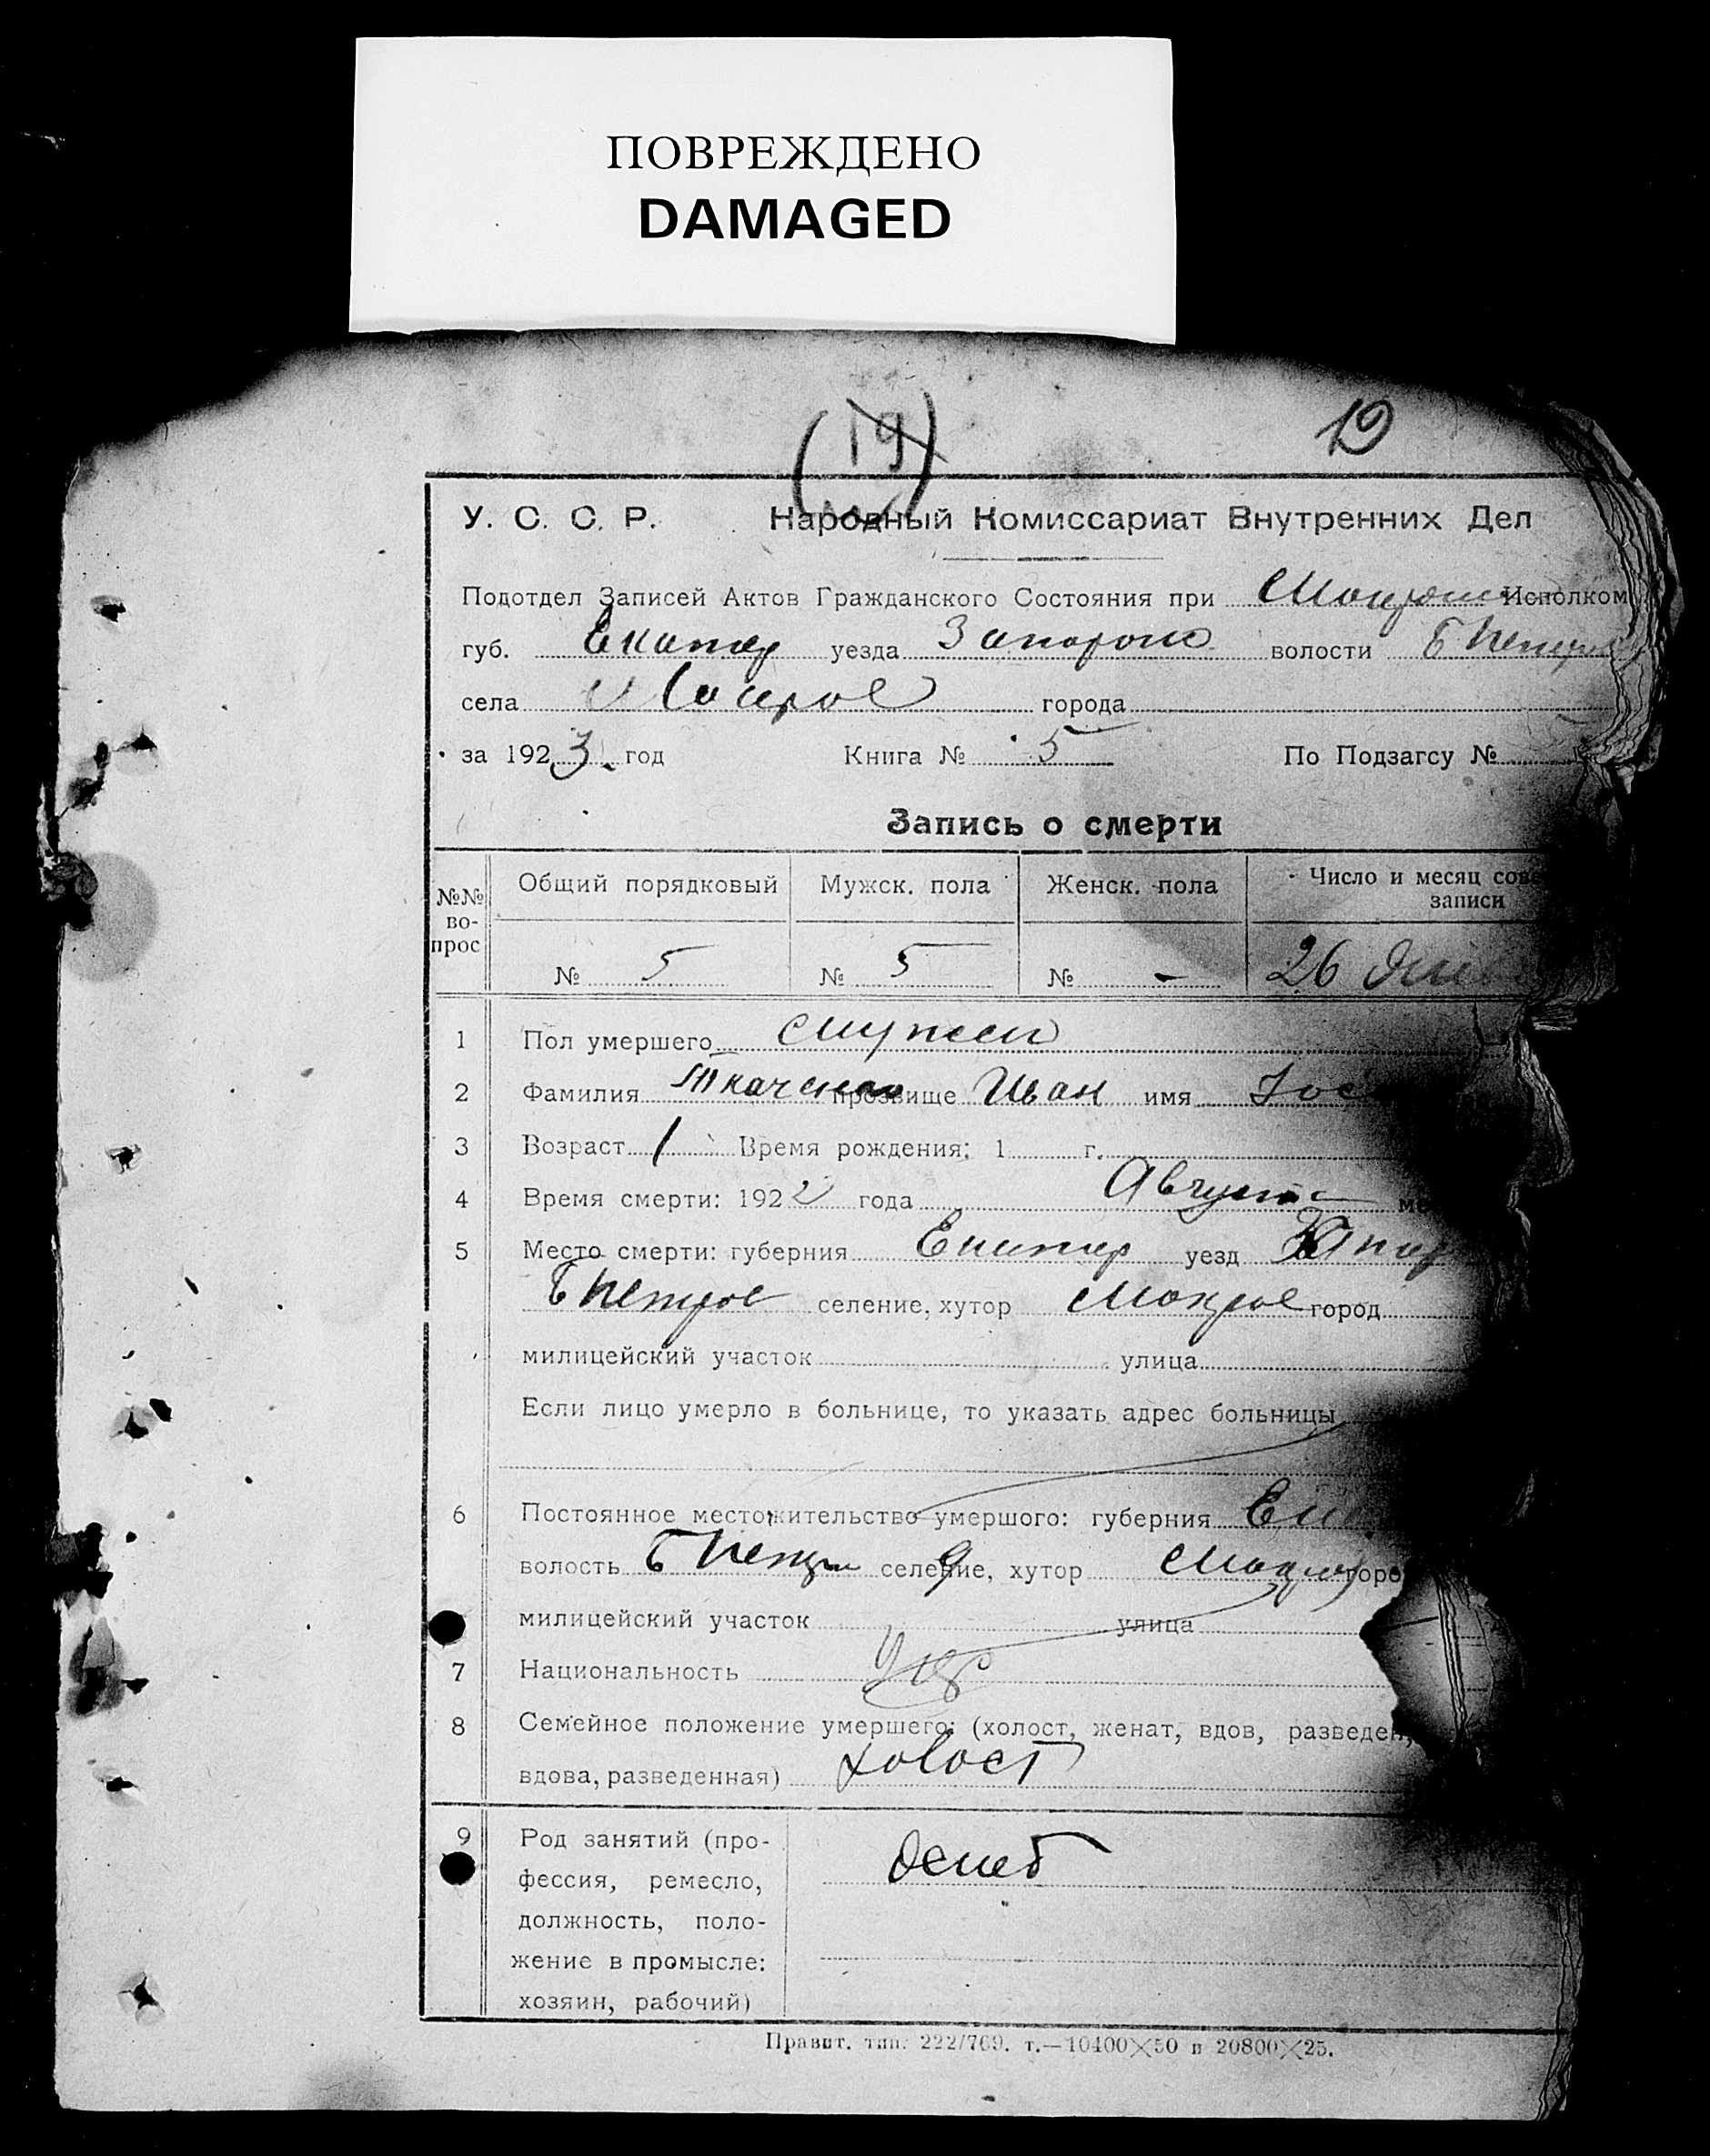 ПОВРЕЖДЕНО
DAMAGED
(19) 19
У. С. С. Р. Народный Комиссариат Внутренних Дел
Подотдел Записей Актов Гражданского Состояния при Исполком
губ. Екатер уезда Запорож волости Б Петр
села Мокрое города
за 1923 год Книга № 5 По Подзагсу №
Запись о смерти
№№ во-прос Общий порядковый Мужск. пола Женск. пола Число и месяц сове
записи
№ 5 № 5 № - 26
1 Пол умершего мужск
2 Фамилия Ткаченко прозвище Иван имя
3 Возраст 1 Время рождения: 1 г.
4 Время смерти: 1922 года Августа ме
5 Место смерти: губерния Екатер уезд Запор
Б Петров селение, хутор Мокрое город
милицейский участок улица
Если лицо умерло в больнице, то указать адрес больницы
6 Постоянное местожительство умершего: губерния Ека
волость Б Петр селение, хутор Мокрое горо
милицейский участок улица
7 Национальность Укр
8 Семейное положение умершего: (холост, женат, вдов, разведен,
вдова, разведенная) холост
9 Род занятий (про-
фессия, ремесло,
должность, поло-
жение в промысле:
хозяин, рабочий)
Правит. тип. 222/769. т.—10400×50 и 20800×25.